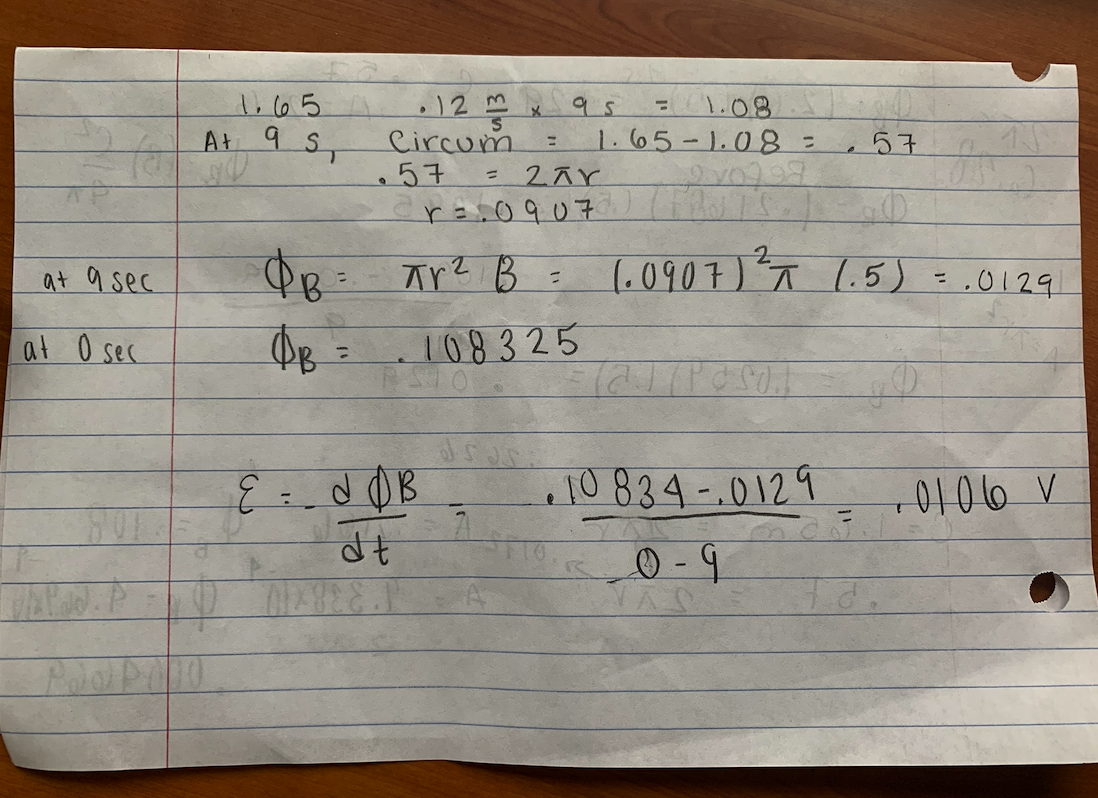 1.65 .12 m/s × 9 s = 1.08
At 9 s, Circum = 1.65 - 1.08 = .57
.57 = 2πr
r = .0907
at 9 sec ΦB = πr² B = (.0907)²π (.5) = .0129
at 0 sec ΦB = .108325
ε = - dΦB/dt = .10834 - .0129 / 0 - 9 = .0106 V